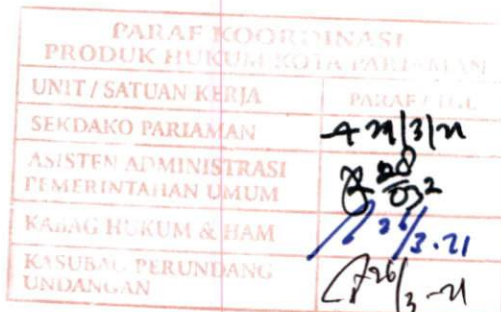 PARAF KOORDINASI
PRODUK HUKUM KOTA PARIAMAN
UNIT / SATUAN KERJA PARAF / TGL
SEKDAKO PARIAMAN 29/3/21
ASISTEN ADMINISTRASI
PEMERINTAHAN UMUM
KABAG HUKUM & HAM 26/3.21
KASUBAG PERUNDANG
UNDANGAN 26/3-21